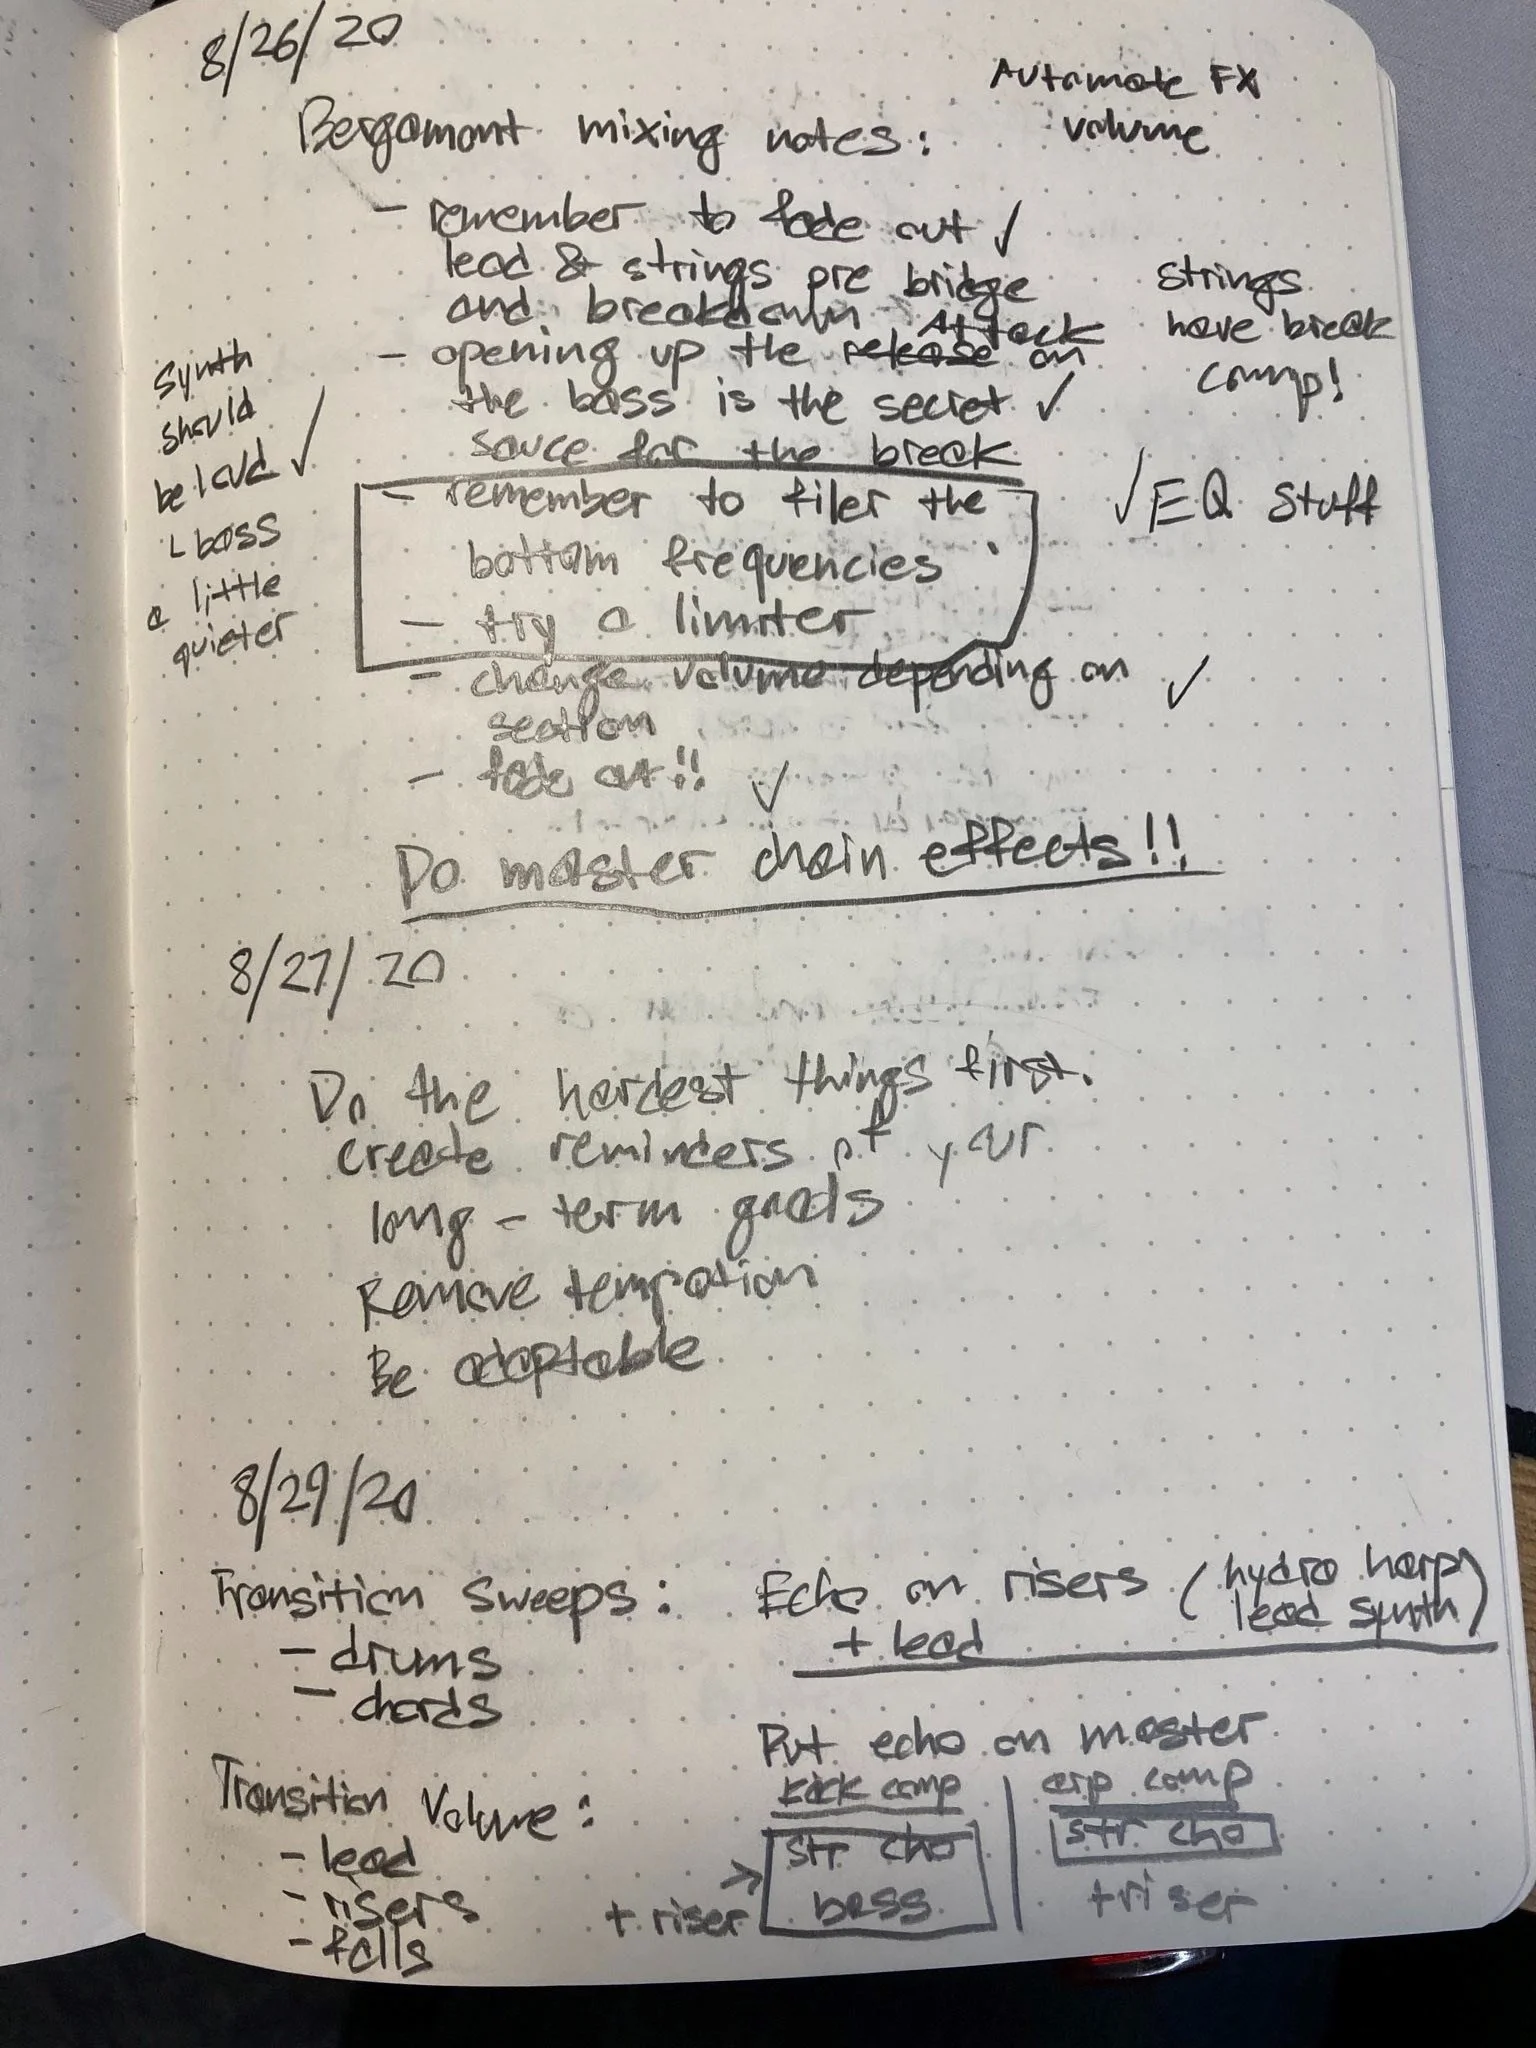 8/26/20
Automate FX
volume
Bergamont mixing notes:
- remember to fade out ✓
lead & strings pre bridge
and breakdown
- opening up the release Attack on
the bass is the secret ✓
sauce for the break
- remember to filer the
bottom frequencies
- try a limiter
- change volume depending on ✓
section
- fade out!! ✓
Do master chain effects!!
strings
have break
comp!
✓ EQ stuff
synth
should
be loud ✓
└ bass
a little
quieter
8/27/20
Do the hardest things first.
create reminders of your
long-term goals
Remove tempation
Be adaptable
8/29/20
Transition Sweeps:
- drums
- chords
Transition Volume:
- lead
- risers
- falls
Echo on risers (hydro harp
lead synth)
+ lead
Put echo on master
kick comp
str cho
bass
+ riser →
arp comp
str cho
+ riser